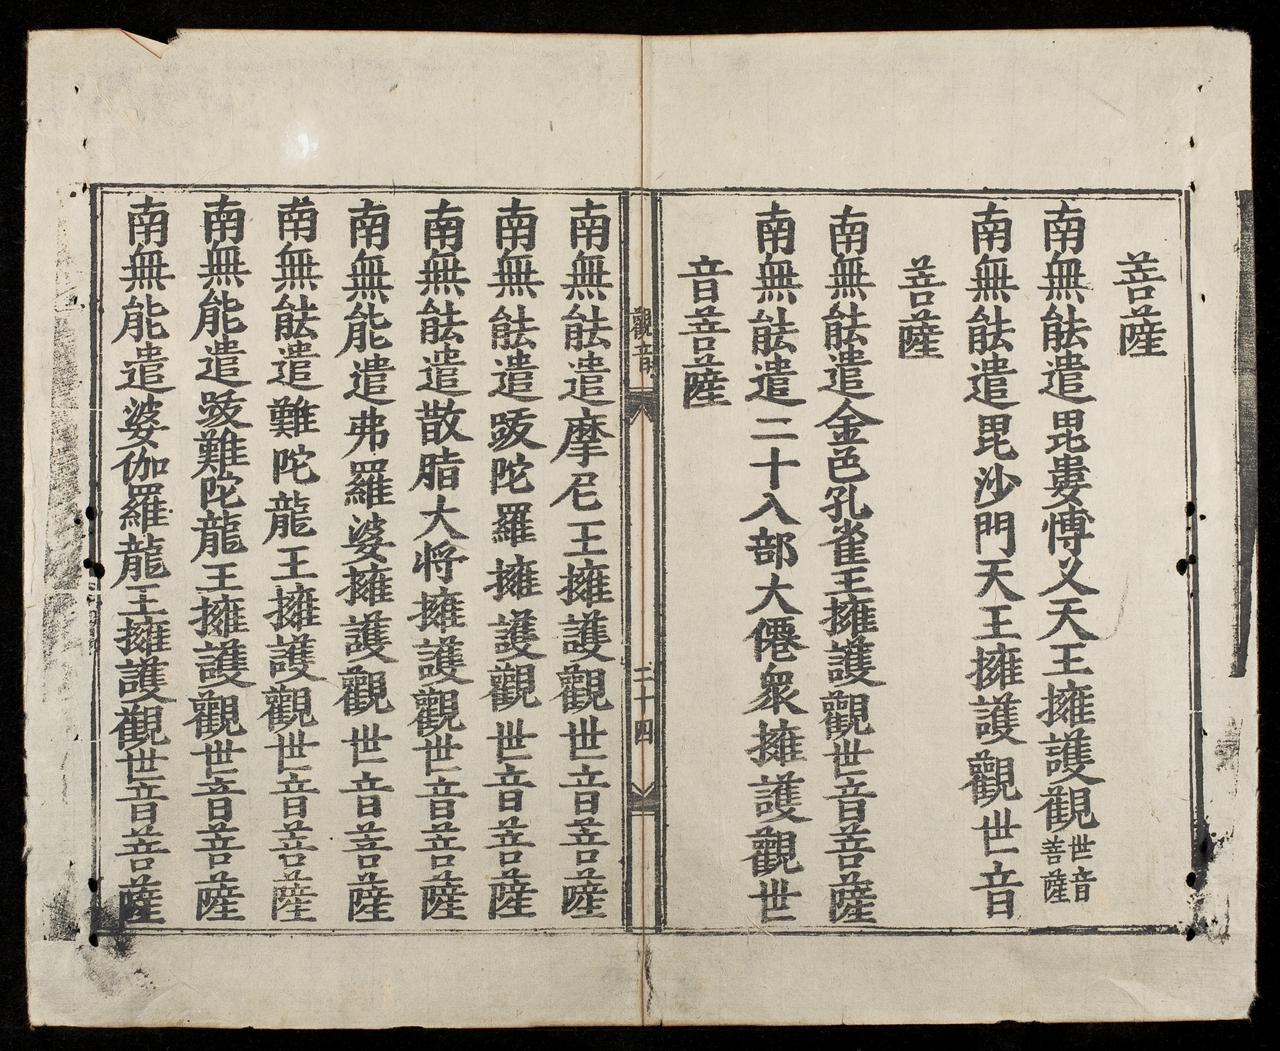 菩薩
南無能遣毘婁博叉天王擁護觀世音菩薩
南無能遣毘沙門天王擁護觀世音
菩薩
南無能遣金色孔雀王擁護觀世音菩薩
南無能遣二十八部大僊衆擁護觀世
音菩薩
觀音 二十四
南無能遣摩尼王擁護觀世音菩薩
南無能遣跋陀羅擁護觀世音菩薩
南無能遣散脂大将擁護觀世音菩薩
南無能遣弗羅婆擁護觀世音菩薩
南無能遣難陀龍王擁護觀世音菩薩
南無能遣跋難陀龍王擁護觀世音菩薩
南無能遣婆伽羅龍王擁護觀世音菩薩